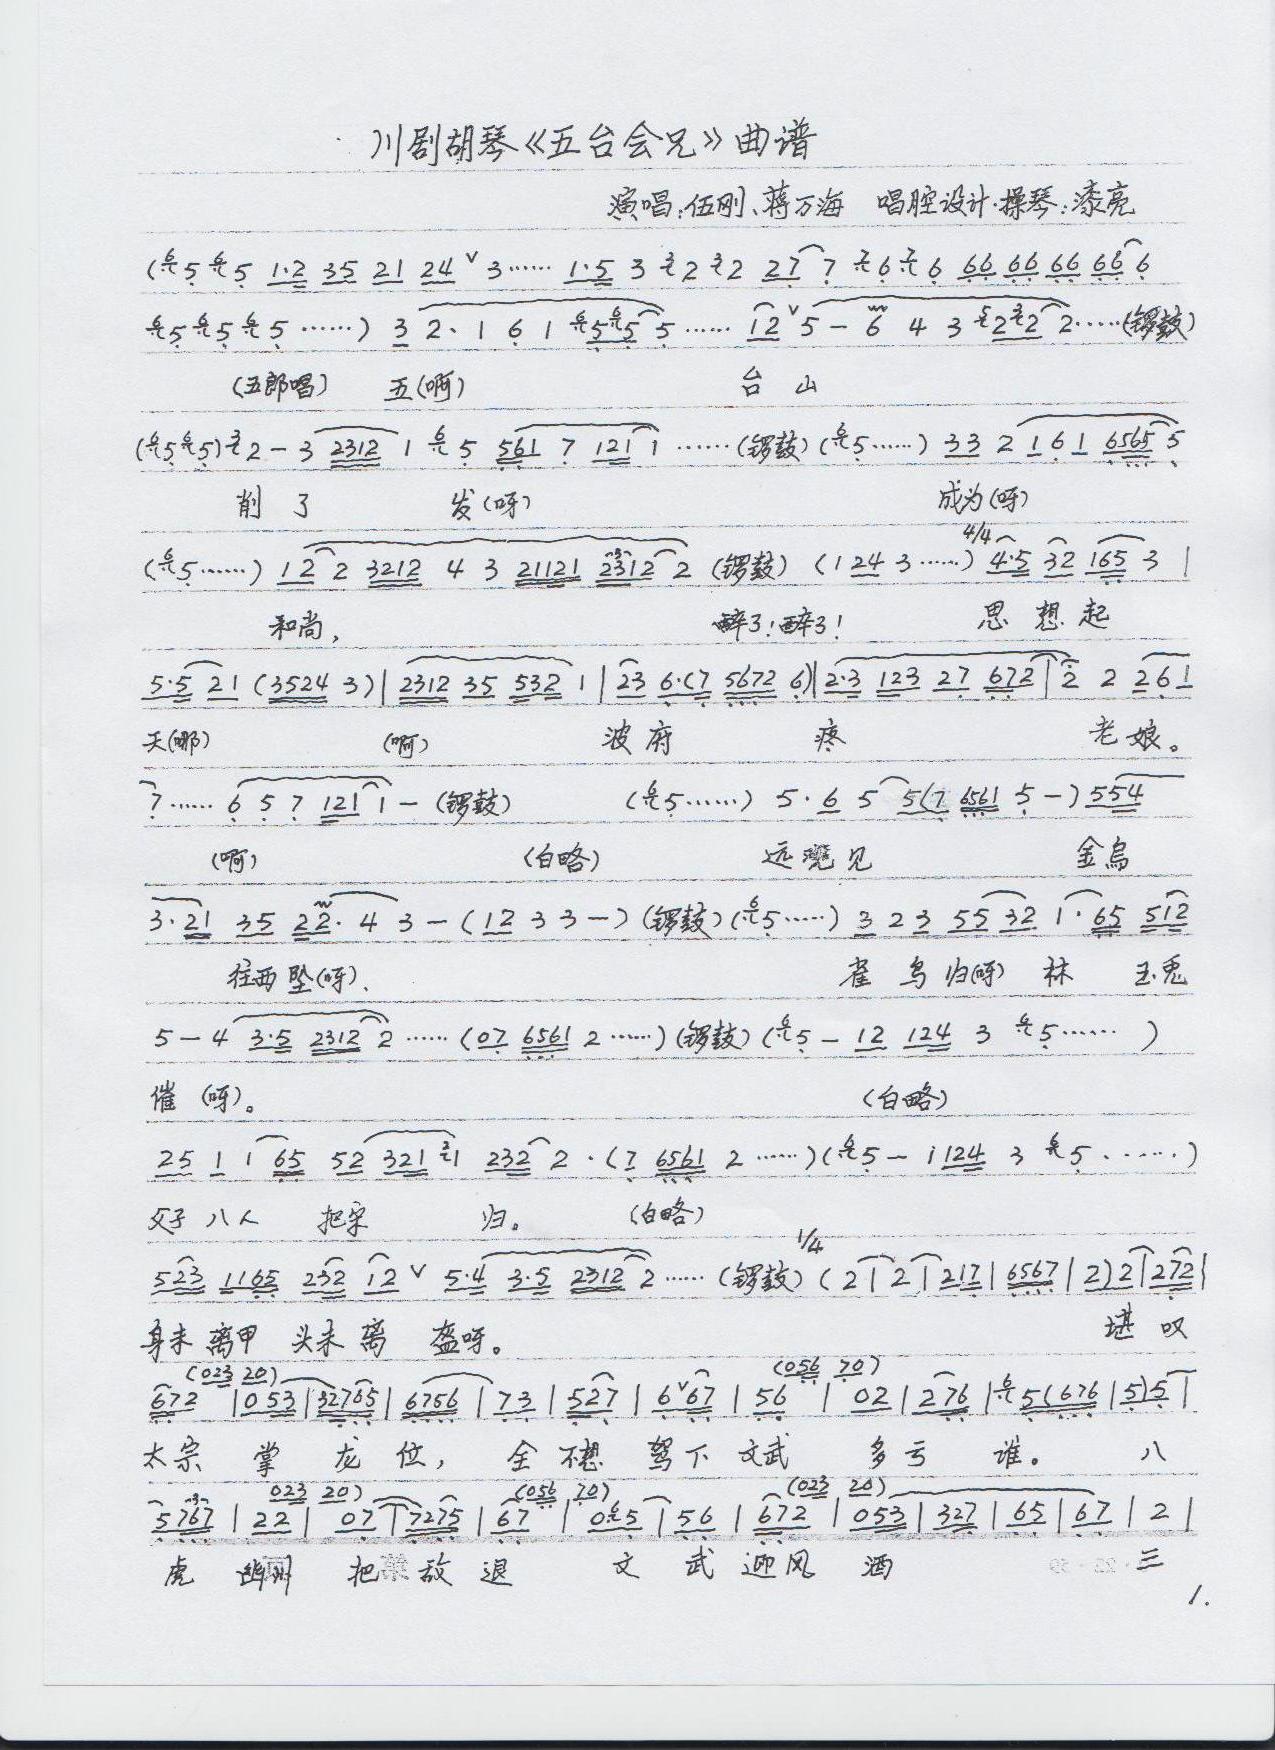 川剧胡琴《五台会兄》曲谱
演唱:伍刚、蒋万海 唱腔设计·操琴:漆亮
5 5 1·2 35 21 24 ˅ 3…… 1·5 3 2 2 27 7 6 6 66 66 66 66 6
5 5 5 ……) 3 2·1 6 1 5 5 5 …… 12 ˅ 5 — 6 4 3 2 2 2……(锣鼓)
(五郎唱) 五(啊) 台 山
(5 5) 2 — 3 2312 1 5 561 7 121 1 ……(锣鼓)(5……) 33 2 1 6 1 6565 5
削 了 发(呀) 成为(呀)
(5……) 12 2 3212 4 3 21121 2312 2 (锣鼓) (1 24 3 ……) 4/4 4·5 32 165 3 |
和尚, 醉了!醉了! 思 想 起
5·5 21 (3524 3) | 2312 35 532 1 | 23 6·(7 5672 6) | 2·3 123 27 672 | 2 2 2 6 1
天(哪) (啊) 波府 疼 老娘。
7…… 6 5 7 121 1 — (锣鼓) (5……) 5·6 5 5(7 6561 5 —) 554
(啊) (白略) 远观见 金乌
3·21 35 22·4 3 — (12 3 3 —) (锣鼓) (5……) 3 2 3 55 32 1·65 512
往西坠(呀)、 雀鸟归(呀) 林 玉兔
5 — 4 3·5 2312 2 …… (07 6561 2 ……) (锣鼓) (5 — 12 124 3 5…… )
催(呀)。 (白略)
25 1 1 65 52 321 1 232 2·(7 6561 2 ……)(5 — 1 124 3 5 ……)
父子 八人 把宋 归。 (白略)
523 1165 232 12 ˅ 5·4 3·5 2312 2…… (锣鼓) 1/4 (2 | 2 | 217 | 6567 | 2) 2 | 272 |
身未离甲 头未离 盔呀。 堪叹
(023 20) (056 70)
672 | 053 | 32765 | 6756 | 73 | 527 | 6 ˅ 67 | 56 | 02 | 276 | 5(676 | 5) 5 |
太宗 掌 龙 位, 全 不想 驾下 文武 多亏 谁。 八
023 20) (056 70) (023 20)
5767 | 22 | 07 | 7275 | 67 | 05 | 56 | 672 | 053 | 327 | 65 | 67 | 2 |
虎 幽州 把 敌 退 文 武 迎风 酒 三
1.